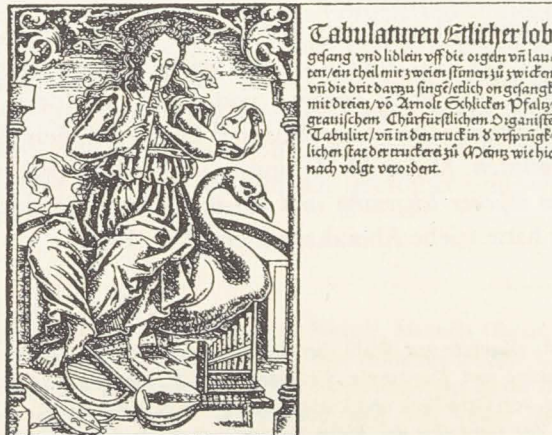 Tabulaturen Etlicher lob
gesang vnd lidlein vff die orgeln vñ lau
ten/ein theil mit zweien stimen zü zwicken
vñ die drit dartzu singē/etlich on gesangk
mit dreien/vō Arnolt Schlicken Pfaltz
grauischem Chürfürstlichem Organistē
Tabulirt/vñ in den truck in d vrsprügk
lichen stat der truckerei zü Meintz wie hie
nach volgt verordent.